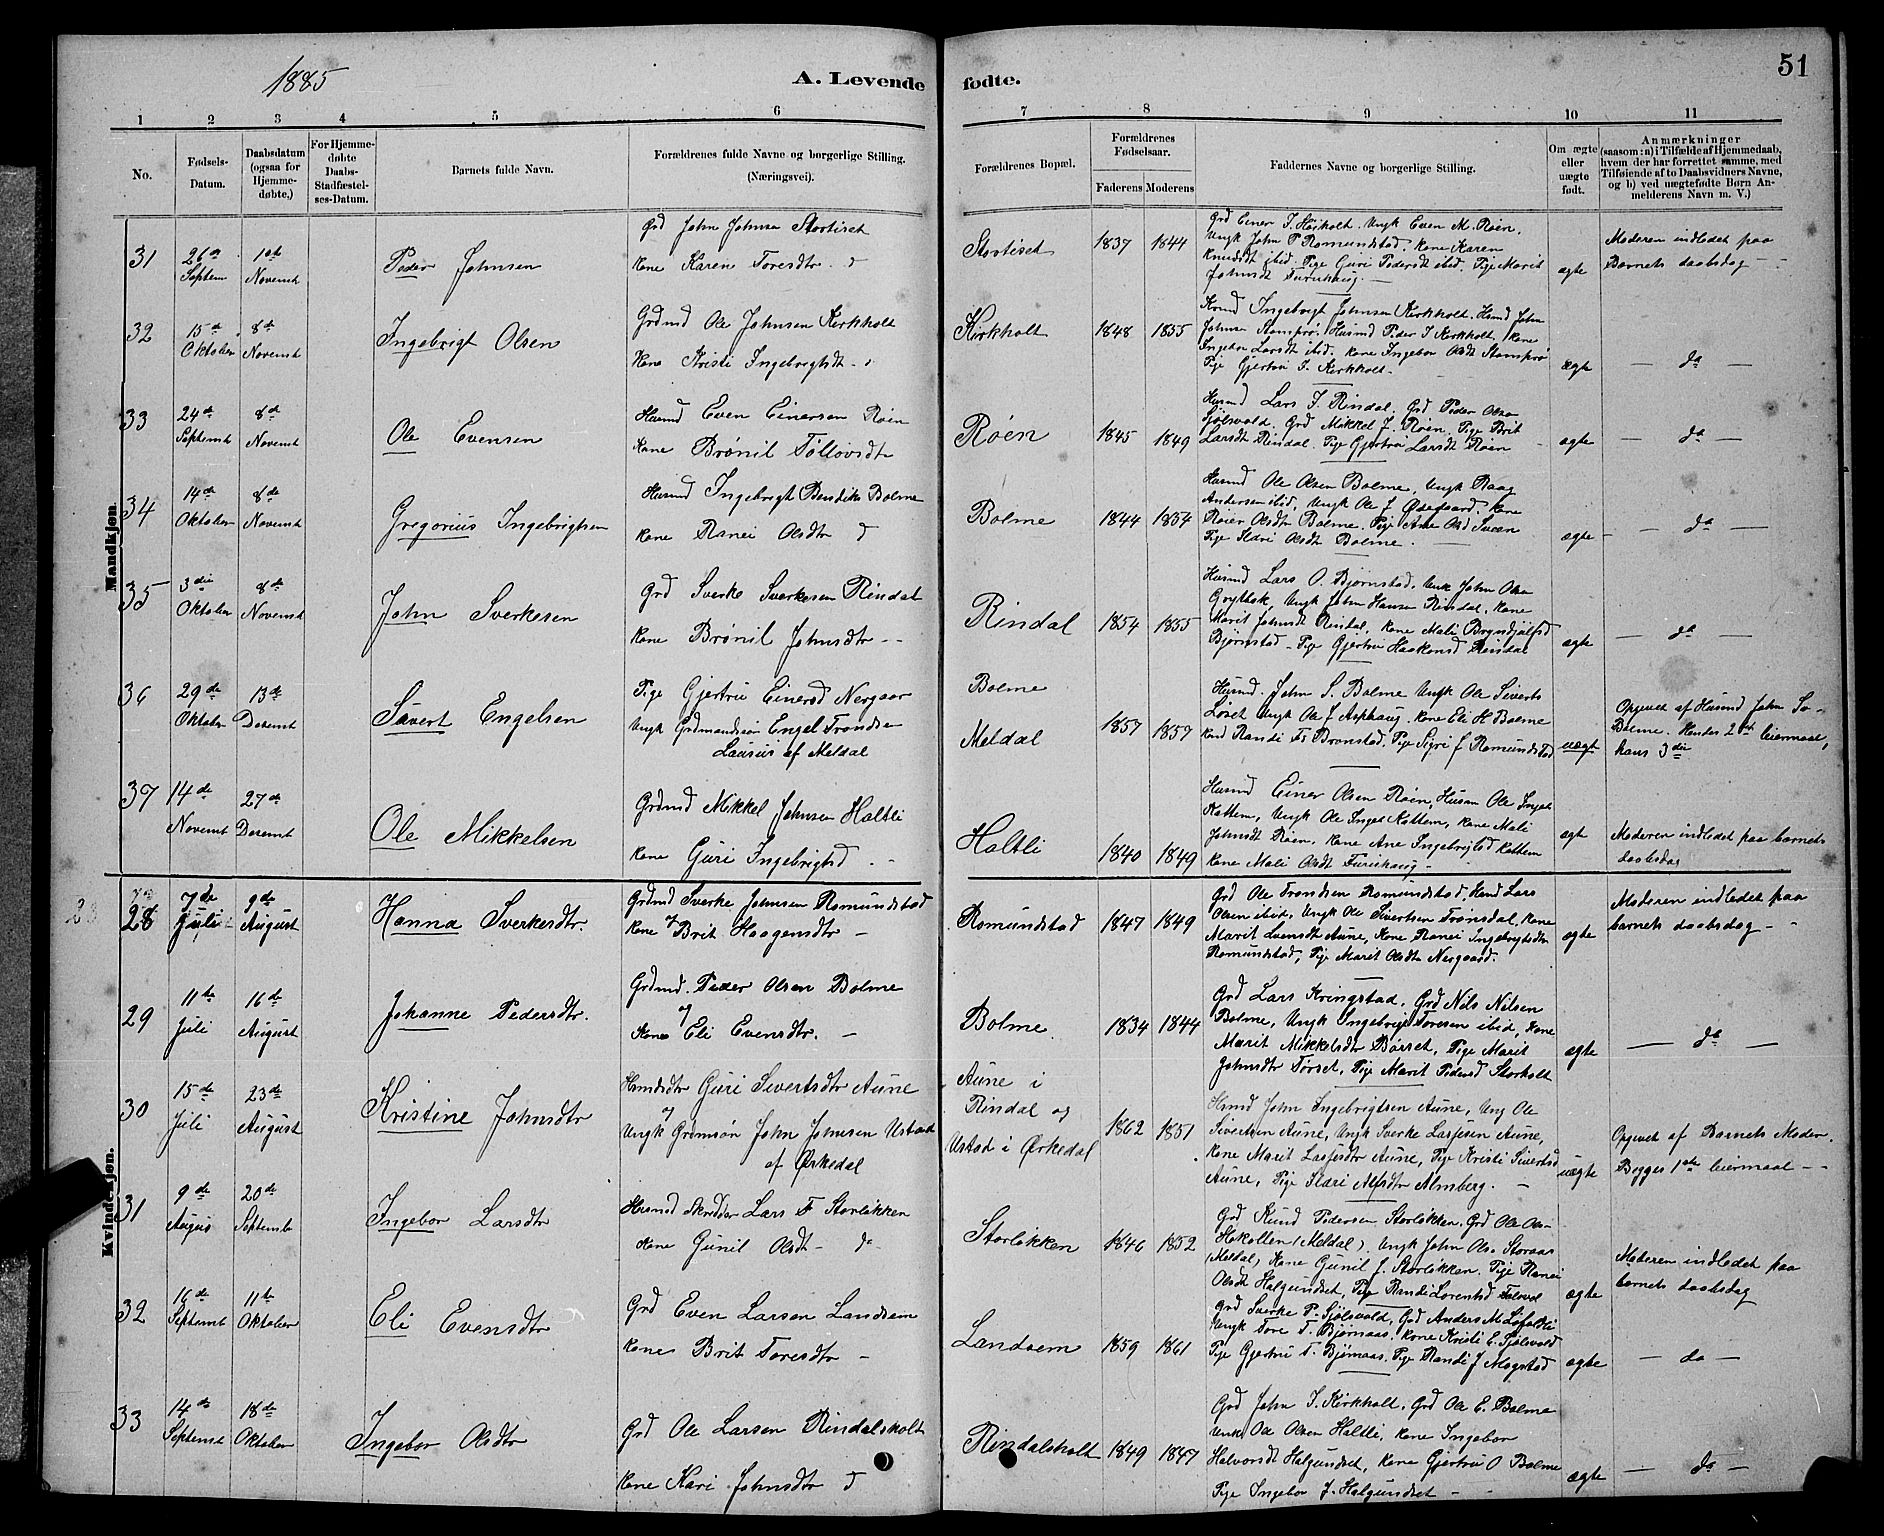 1885
A. Levende fødte.
51
1 2 3 4 5 6 7 8 9 10 11
No.
Fødsels-Datum.
Daabsdatum (ogsaa for Hjemme-døbte.)
For Hjemme-døbte Daabs-Stadfæstel-ses-Datum.
Barnets fulde Navn.
Forældrenes fulde Navne og borgerlige Stilling. (Næringsvei).
Forældrenes Bopæl.
Forældrenes Fødselsaar.
Faderens Moderens
Faddernes Navne og borgerlige Stilling.
Om ægte eller uægte født.
Anmærkninger (saasom: a) i Tilfælde af Hjemmedaab, hvem der har forrettet samme, med Tilføiende af to Daabsvidners Navne, og b) ved uægtefødte Børn An-melderens Navn m. V.)
Mandkjøn.
31
26de Septem
1ste Novemt
Peder Johnsen
Grd John Johnsen Stortiset
Kone Karen Toresdtr. d
Stortiset
1837 1844
Grd Einer I. Høiholt. Ungk Even M. Røen.
Ungk John P Romundstad. Kone Karen
Knudsdt ibid. Pige Guri Pedersdt ibid. Pige Marit
Johnsdt Furuhaug. —
ægte
Moderen indledet paa
Barnets daabsdag —
32
15de Oktober
8de Novemt
Ingebrigt Olsen
Grdmd Ole Johnsen Kirkholt
Kone Kristi Ingebrigtsdt - d
Kirkholt
1848 1855
Grmd Ingebrigt Johnsen Kirkholt. Hmd John
Johnsen Stomprø. Husmd Peder I Kirkholt, Kone
Ingebor Larsdt ibid. Kone Ingebor Olsdt Stomprø
Pige Gjertru I. Kirkholt —
ægte
— da —
33
24de Septembt
8de Novemt
Ole Evensen
Husmd Even Einersen Røen
Kone Brønil Tollovsdtr
Røen
1845 1849
Husmd Lars I. Rindal. Grd Peder Olsa
Sjølsvold. Grd Mikkel I. Røen. Pige Brit
Larsdt Rindal. Pige Gjertru Larsdt Røen —
ægte
— da —
34
14de Oktober
8de Novemt
Gregorius Ingebrigtsen
Husmd Ingebrigt Bendiks Bolme
Kone Ranei Olsdtr d
Bolme
1844 1854
Husmd Ole Olsen Bolme, Ungk Haag
Andersen ibid, Ungk Ole J Ødegaard. Kone
Røier Olsdtr Bolme. Pige Ane Olsd Svean
Pige Slari Olsdt Bolme.
ægte -
— da —
35
3die Oktober
8de Novemt
John Sverkesen
Grd Sverke Sverkesen Rindal
Kone Brønil Johnsdtr - -
Rindal
1854 1855
Husmd Lars O. Bjørnstad. Ungk John Olsa
Grytbak, Ungk John Hansen Rindal, Kone
Marit Johnsdt Rindal, Kone Mali Brynjulfsd
Bjørnstad - Pige Gjertru Haakensd Rindal
ægte
— da —
36
29de Oktober
13de Decemt
Sivert Engelsen
Pige Gjertru Einersd Nergaar
Ungk Grdmandssøn Engel Trondsen
af Meldal
Bolme
Meldal
1857 1857
Husmd. John S. Bolme Ungk Ole Siverts
Løset Ungk Ole J Asphaug. Kone Eli H Bolme
Kone Randi Fr Bronstad. Pige Sigri J Romundstad
uægt
Opgivet af Husmd John S.
Bolme. Hendes 2det leiermaal,
hans 3die
37
14de Novemt
27de Decemt
Ole Mikkelsen
Grdmd Mikkel Johnsen Haltli
Kone Guri Ingebrigtsd - -
Haltli
1840 1849
Husmd Einer Olsen Røen, Husm Ole Inget
Kattem, Ungk Ole Inget Kattem, Kone Mali
Johnsdt Røen, Kone Ane Ingebrigtsd Kattem
Kone Mali Olsdt Furuhaug —
ægt
Moderen indledet paa barnets
daabsdag
Kvindekjøn.
28
7de Juli
9de August
Hanna Sverkesdtr.
Grdmd Sverke Johnsen Romundstad
Kone Brit Haagensdtr —
Romundstad
1847 1849
Grd Ole Trondsen Romundstad, Hmd Lars
Olsen ibid, Ungk Ole Sivertsen Tronsdal, Kone
Marit Svensdt Aune, Kone Ranei Ingebrigtsdtr
Romundstad, Pige Marit Olsdt Nergaard.
ægte
Moderen indledet paa
barnets daabsdag — -
29
11te Juli
16de August
Johanne Pedersdtr.
Grdmd. Peder Olsen Bolme
Kone Eli Evensdtr. —
Bolme
1834 1844
Grd Lars Kringstad. Grd Nils Nilsen
Bolme, Ungk Ingebrigt Toresen ibid, Kone
Marit Mikkelsdtr Børset, Pige Marit
Johnsdtr Torset, Pige Marit Pedersd Storholt
ægte
— da —
30
15de Juli
23de August
Kristine Johnsdtr
Hmdsdtr Guri Sivertsdtr Aune
Ungk Grdmsøn John Johnsen Ustad
af Ørkedal
Aune i
Rindal og
Ustad i Ørkedal
1862 1851
Hmd John Ingebrigtsen Aune, Ung Ole
Sivertsen Aune, Ungk Sverke Lassesen Aune,
Kone Marit Lassesdtr Aune, Pige Kristi Sivertsd
Aune, Pige Slari Alfsdtr Almberg. —
uægte
Opgivet af Barnets Moder.
Begges 1ste leiermaal - -
31
9de August
20de Septembr
Ingebor Larsdtr
Husmd Skrædder Lars F Storløkken
Kone Gunil Olsdt - da
Storløkken
1846 1852
Grd Knud Pedersen Storløkken, Grd Ole Ols-
Hokollen (Meldal). Ungk John Ols. Storaas
(Meldal, Kone Gunil J. Storløkken. Pige Ranei
Olsdt Halgundset, Pige Randi Lorentsd
ægte
Moderen indledet paa
barnets daabsdag
32
16de Septembt
11te Oktober
Eli Evensdtr
Grd Even Larsen Landsem
Kone Brit Toresdtr —
Landsem
1859 1861
Grd Sverke P. Sjølsvold, Grd Anders M Løfaldli
Ungk Tore T. Bjørnaas, Kone Kristi E. Sjølsvold
Pige Gjertru T. Bjørnaas, Pige Randi J Mogstad
ægte
— do —
33
14de Septemt
18de Oktober
Ingebor Olsdtr
Grd Ole Larsen Rindalsholt
Kone Kari Johnsdtr d
Rindalsholt
1849 1847
Grd John I. Kirkholt, Grd Ole E. Bolme
Ungk Ole Olsen Haltli, Kone Ingebor
Halvorsdt Halgundset, Kone Gjertru O Bolme
Pige Ingebor J. Halgundset — -
ægte
— da —